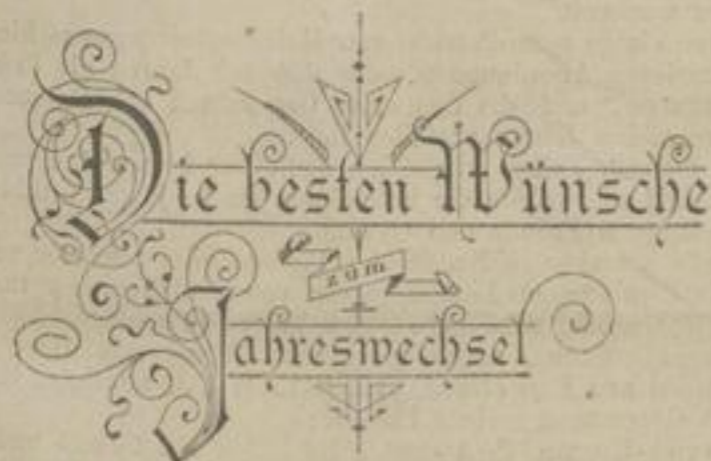 Die besten Wünsche
zum
Jahreswechsel